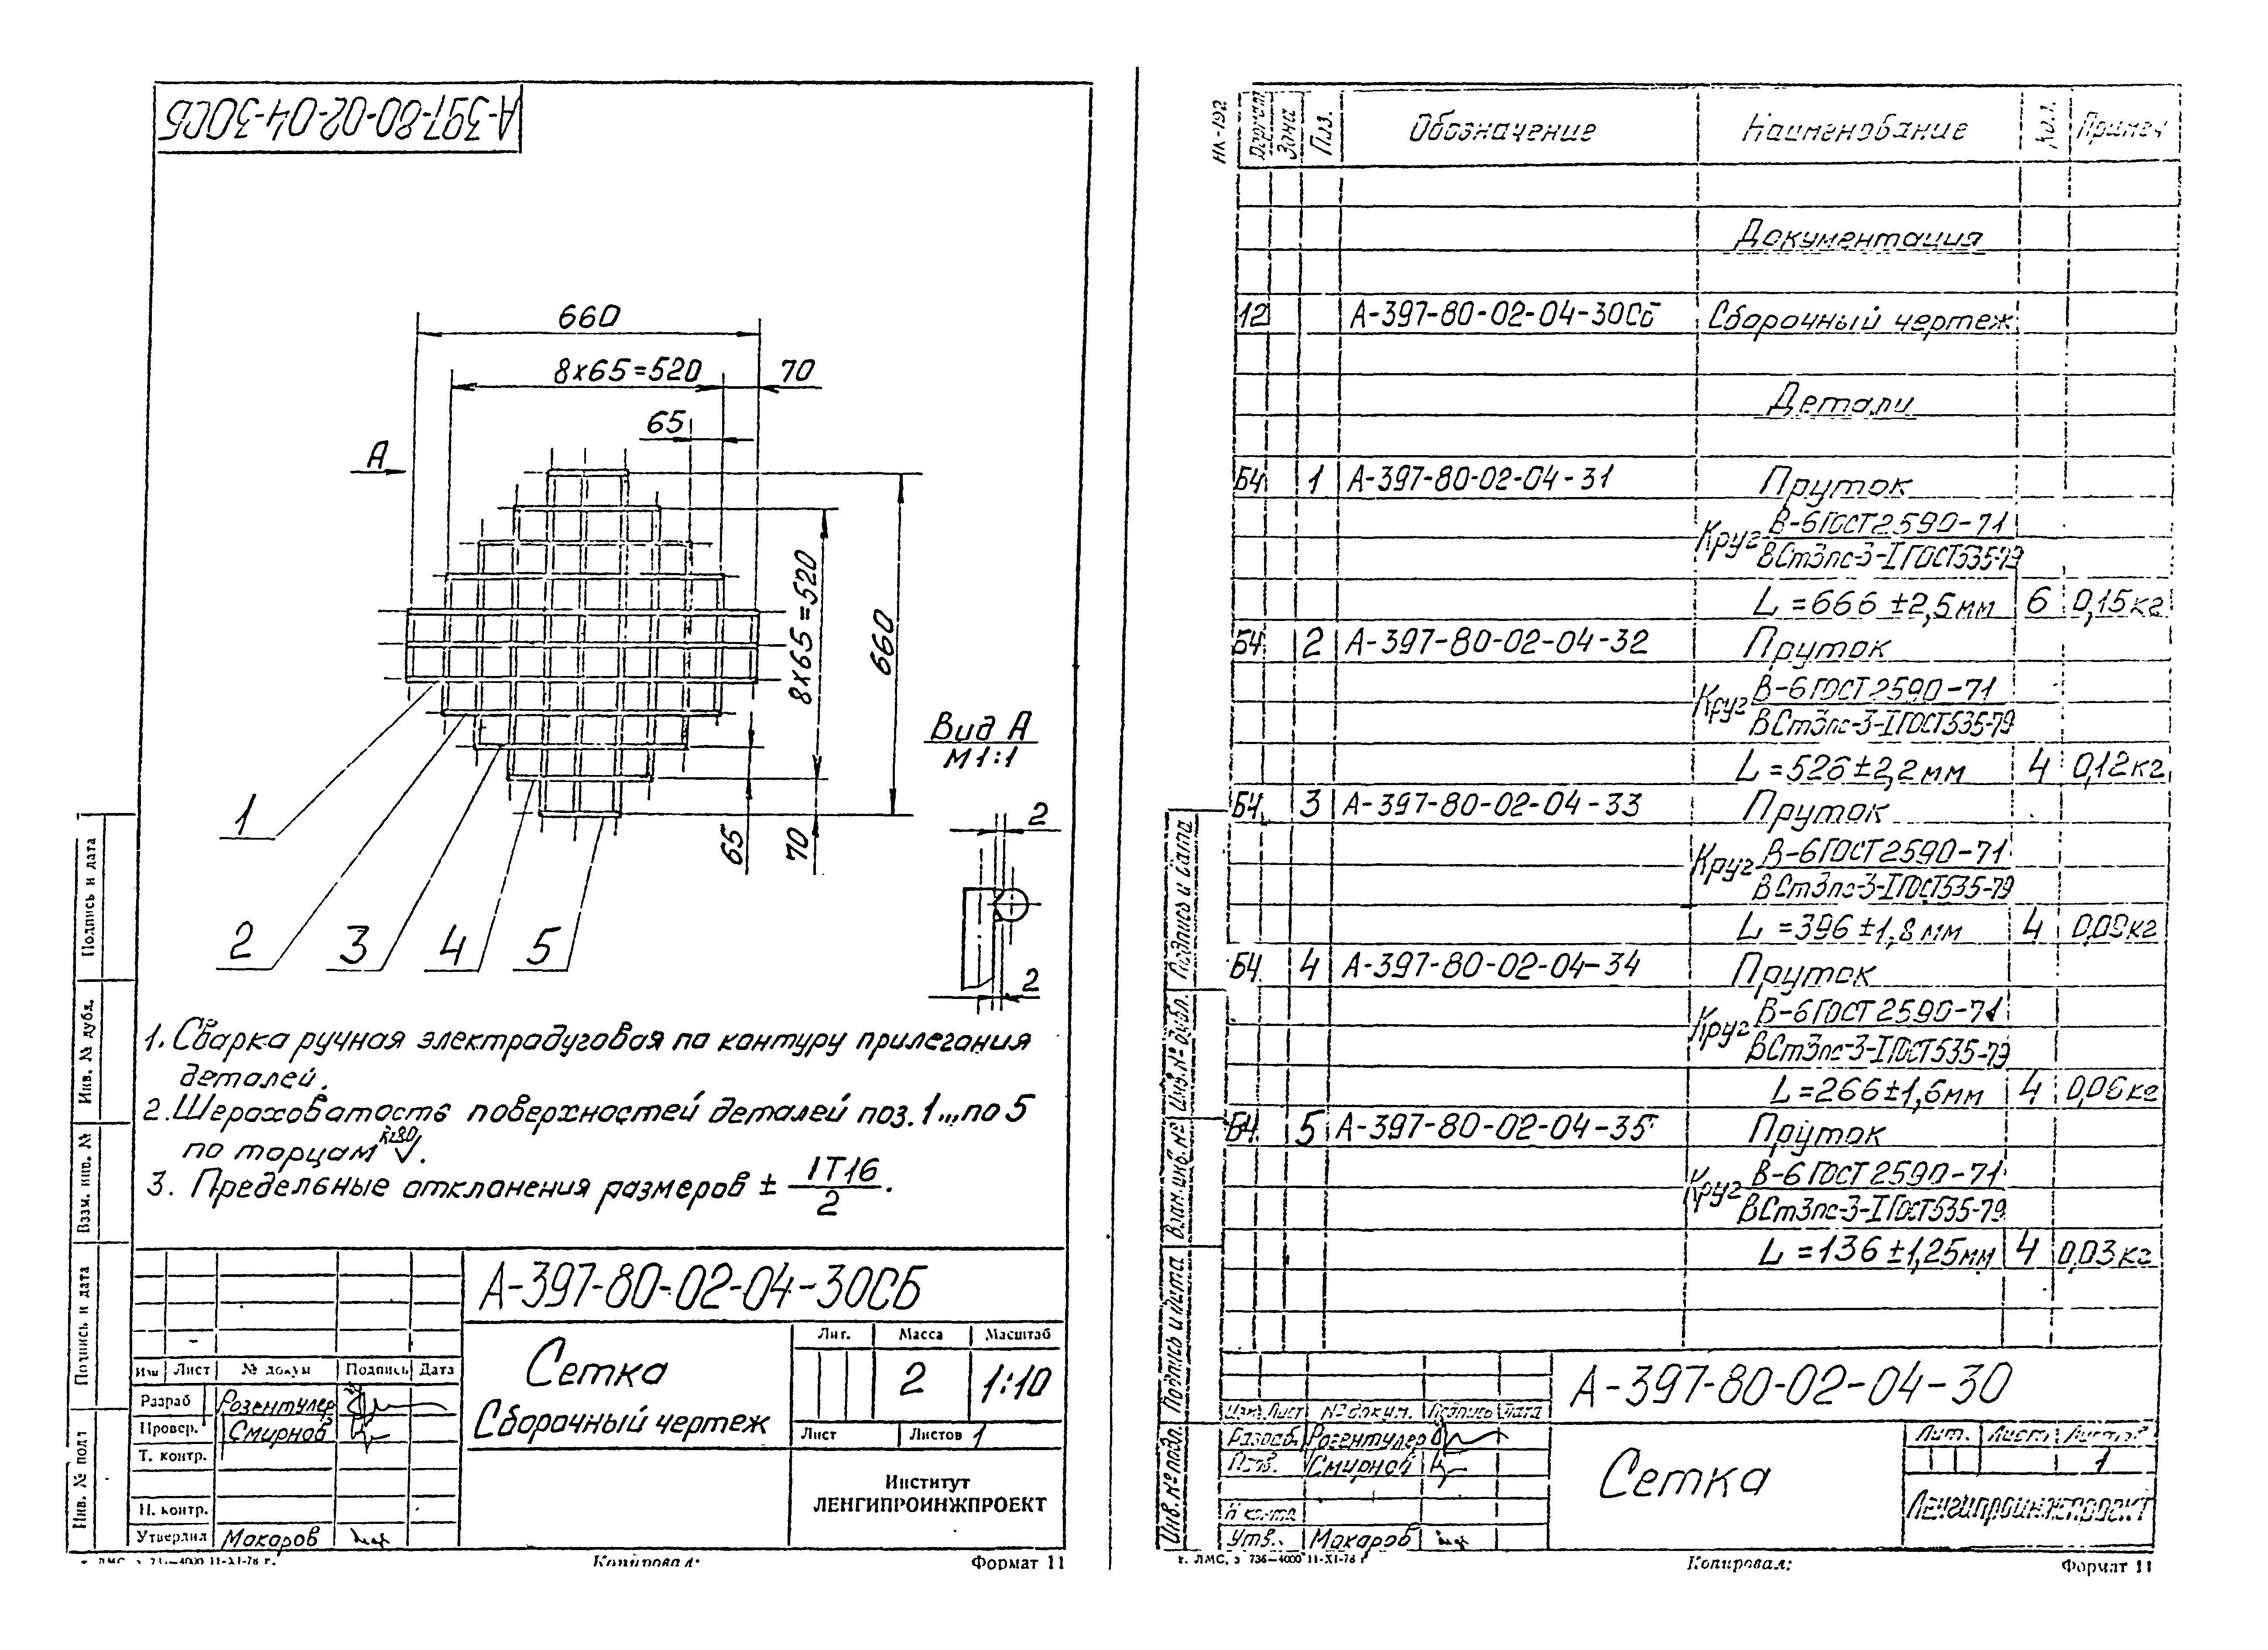 А-397-80-02-04-30СБ
660
8х65=520
70
65
А
8х65=520
660
65
70
Вид А
М1:1
2
2
1
2
3
4
5
1. Сварка ручная электродуговая по контуру прилегания
деталей.
2. Шероховатость поверхностей деталей поз. 1...по 5
по торцам Rz80.
3. Предельные отклонения размеров ± IT16/2.
Подпись и дата
Инв. № дубл.
Взам. инв. №
Подпись и дата
Инв. № подл
А-397-80-02-04-30СБ
Изм Лист № докум Подпись Дата
Разраб Розентулер
Провер. Смирнов
Т. контр.
Н. контр.
Утвердил Макаров
Сетка
Сборочный чертеж
Лит. Масса Масштаб
2 1:10
Лист Листов 1
Институт
ЛЕНГИПРОИНЖПРОЕКТ
т. ЛМС, з 736—4000 11-XI-78 г.
Копировал:
Формат 11
НЛ-192
Формат Зона Поз. Обозначение Наименование Кол. Примеч
Документация
12 А-397-80-02-04-30Сб Сборочный чертеж
Детали
БЧ 1 А-397-80-02-04-31 Пруток
Круг В-6 ГОСТ 2590-71
ВСт3пс-3-I ГОСТ535-79
L=666±2,5мм 6 0,15кг
БЧ 2 А-397-80-02-04-32 Пруток
Круг В-6 ГОСТ 2590-71
ВСт3пс-3-I ГОСТ535-79
L=526±2,2мм 4 0,12кг
БЧ 3 А-397-80-02-04-33 Пруток
Круг В-6 ГОСТ 2590-71
ВСт3пс-3-I ГОСТ535-79
L=396±1,8мм 4
БЧ 4 А-397-80-02-04-34 Пруток
Круг В-6 ГОСТ 2590-71
ВСт3пс-3-I ГОСТ535-79
L=266±1,6мм 4 0,06кг
БЧ 5 А-397-80-02-04-35 Пруток
Круг В-6 ГОСТ 2590-71
ВСт3пс-3-I ГОСТ535-79
L=136±1,25мм 4 0,03кг
Подпись и дата
Инв. № дубл.
Взам. инв. №
Подпись и дата
Инв. № подл.
А-397-80-02-04-30
Изм. Лист № докум. Подпись Дата
Разраб. Розентулер
Пров. Смирнов
Н контр
Утв. Макаров
Сетка
Лит. Лист Листов
1
Ленгипроинжпроект
т. ЛМС, з 736—4000 11-XI-78 г
Копировал:
Формат 11